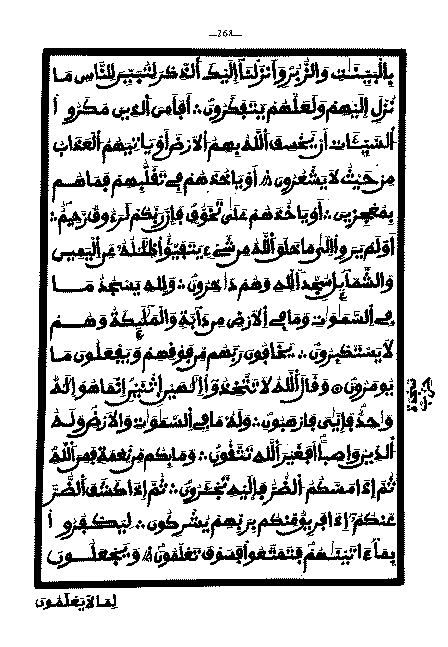 —268—
بِالْبَيِّنَٰتِ وَالزُّبُرِ وَأَنزَلْنَا إِلَيْكَ الذِّكْرَ لِتُبَيِّنَ لِلنَّاسِ مَا
نُزِّلَ إِلَيْهِمْ وَلَعَلَّهُمْ يَتَفَكَّرُونَ ∴ أَفَأَمِنَ الذِينَ مَكَرُوا
السَّيِّـَٔاتِ أَنْ يَّخْسِفَ اللَّهُ بِهِمُ الْأَرْضَ أَوْ يَاتِيَهُمُ الْعَذَابُ
مِنْ حَيْثُ لَا يَشْعُرُونَ ∴ أَوْ يَاخُذَهُمْ فِي تَقَلُّبِهِمْ فَمَا هُم
بِمُعْجِزِينَ ∴ أَوْ يَاخُذَهُمْ عَلَىٰ تَخَوُّفٍ فَإِنَّ رَبَّكُمْ لَرَءُوفٌ رَّحِيمٌ ∴
أَوَلَمْ يَرَوْا إِلَىٰ مَا خَلَقَ اللَّهُ مِن شَيْءٍ يَتَفَيَّؤُا ظِلَٰلُهُ عَنِ الْيَمِينِ
وَالشَّمَآئِلِ سُجَّدًا لِّلَّهِ وَهُمْ دَاخِرُونَ ∴ وَلِلَّهِ يَسْجُدُ مَا
فِي السَّمَٰوَاتِ وَمَا فِي الْأَرْضِ مِن دَابَّةٍ وَالْمَلَٰٓئِكَةُ وَهُمْ
لَا يَسْتَكْبِرُونَ ∴ يَخَافُونَ رَبَّهُم مِّن فَوْقِهِمْ وَيَفْعَلُونَ مَا
يُومَرُونَ ۩ وَقَالَ اللَّهُ لَا تَتَّخِذُوا إِلَٰهَيْنِ اثْنَيْنِ إِنَّمَا هُوَ إِلَٰهٌ
وَاحِدٌ فَإِيَّايَ فَارْهَبُونِ ∴ وَلَهُ مَا فِي السَّمَٰوَاتِ وَالْأَرْضِ وَلَهُ
الدِّينُ وَاصِبًا أَفَغَيْرَ اللَّهِ تَتَّقُونَ ∴ وَمَا بِكُم مِّن نِّعْمَةٍ فَمِنَ اللَّهِ
ثُمَّ إِذَا مَسَّكُمُ الضُّرُّ فَإِلَيْهِ تَجْـَٔرُونَ ∴ ثُمَّ إِذَا كَشَفَ الضُّرَّ
عَنكُمْ إِذَا فَرِيقٌ مِّنكُم بِرَبِّهِمْ يُشْرِكُونَ ∴ لِيَكْفُرُوا
بِمَا ءَاتَيْنَٰهُمْ فَتَمَتَّعُوا فَسَوْفَ تَعْلَمُونَ ∴ وَيَجْعَلُونَ
لِمَا لَا يَعْلَمُونَ